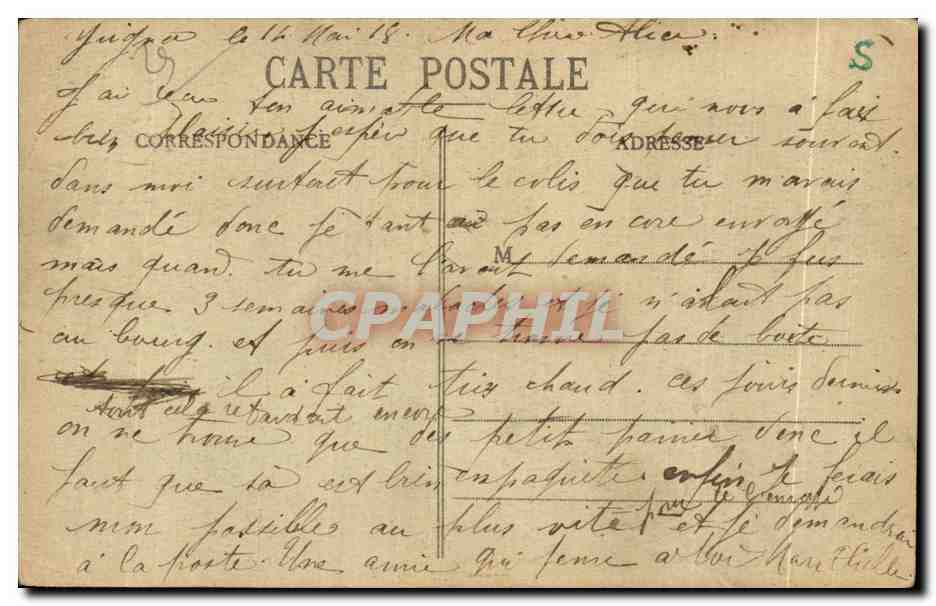 le 14 Mai 18. Ma Chère Alice
S
CARTE POSTALE
J'ai reçu ton aimable lettre qui nous a fais
bien plaisir. j'espér que tu dois penser souvent
CORRESPONDANCE
ADRESSE
dans moi surtout pour le colis que tu m'avais
demandé donc je t'ant ai pas encore envoyé
M
mais quand tu me l'avait demandé je fus
presque 3 semaines malade et je n'alait pas
CPAPHIL
au bourg. et puis on ne trouve pas de boite
il a fait trés chaud. ces jours derniers
tout cela retardait encore
on ne trouve que des petit panier donc il
faut que sa est bien empaqueté. enfin je ferais
pour te l'envoyé
mon possible au plus vite et je demandrai
à la poste. Une amie qui pense a toi